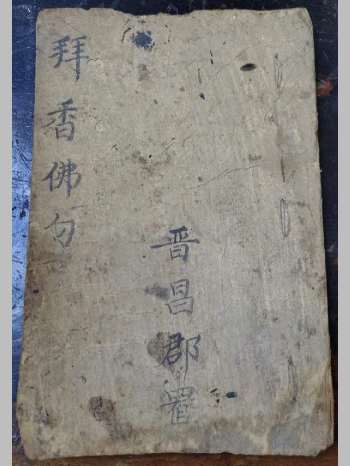 拜香佛句
晋昌郡置